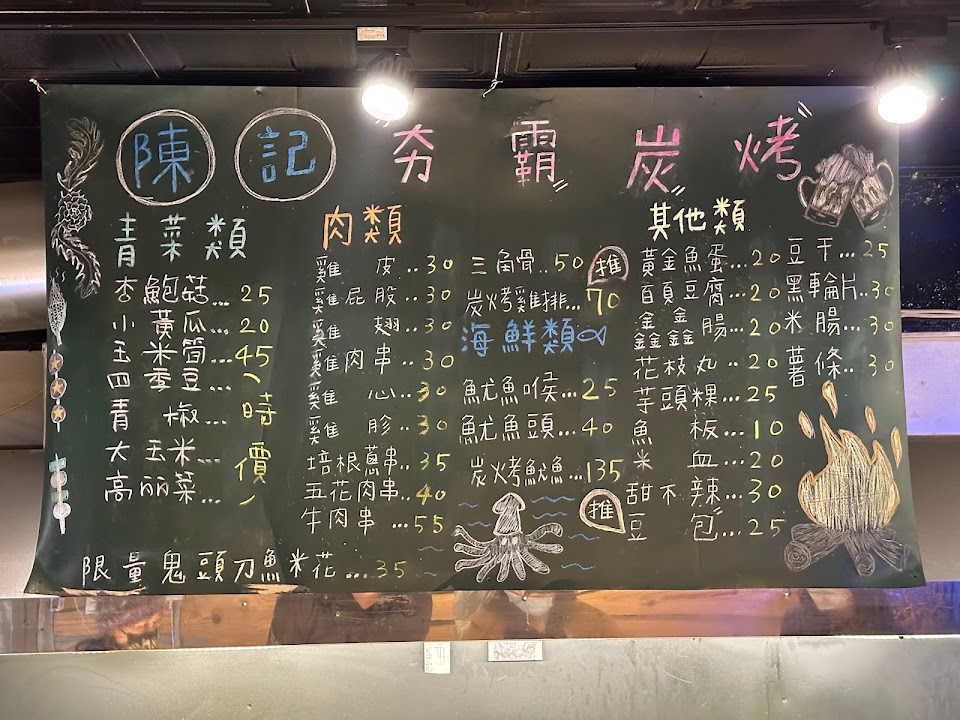 陳記 夯霸炭烤
青菜類
杏鮑菇...25
小黃瓜...20
玉米筒...45
四季豆...
青椒...
大玉米...
高丽菜...
(時價)
肉類
雞皮..30
雞屁股..30
雞翅..30
雞肉串..30
雞心..30
雞胗..30
培根蔥串..35
五花肉串..40
牛肉串...55
三角骨..50
炭烤雞排...70
推
海鮮類
魷魚喉...25
魷魚頭...40
炭烤魷魚...135
推
其他類
黃金魚蛋...20
百頁豆腐...20
鑫鑫腸...20
花枝丸..20
芋頭粿...25
魚板...10
米血...20
甜不辣...30
豆包...25
豆干...25
黑輪片..30
米腸...30
薯條..30
限量鬼頭刀魚米花...35